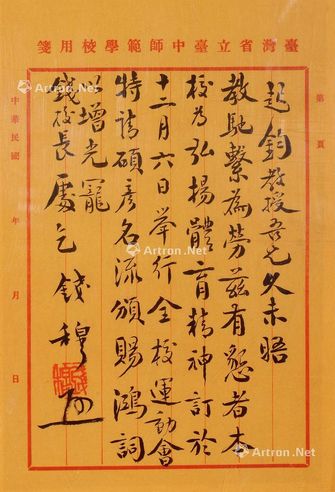 臺灣省立臺中師範學校用箋
第 頁
起鈞教授吾兄久未晤
教馳繫為勞茲有懇者本
校為弘揚體育精神訂於
十二月六日舉行全校運動會
特請碩彥名流頒賜鴻詞
以增光寵
錢校長處乞 錢穆
中華民國 年 月 日
Artron.Net
Artron.Net
Artron.Net
Artron.Net
Artron.Net